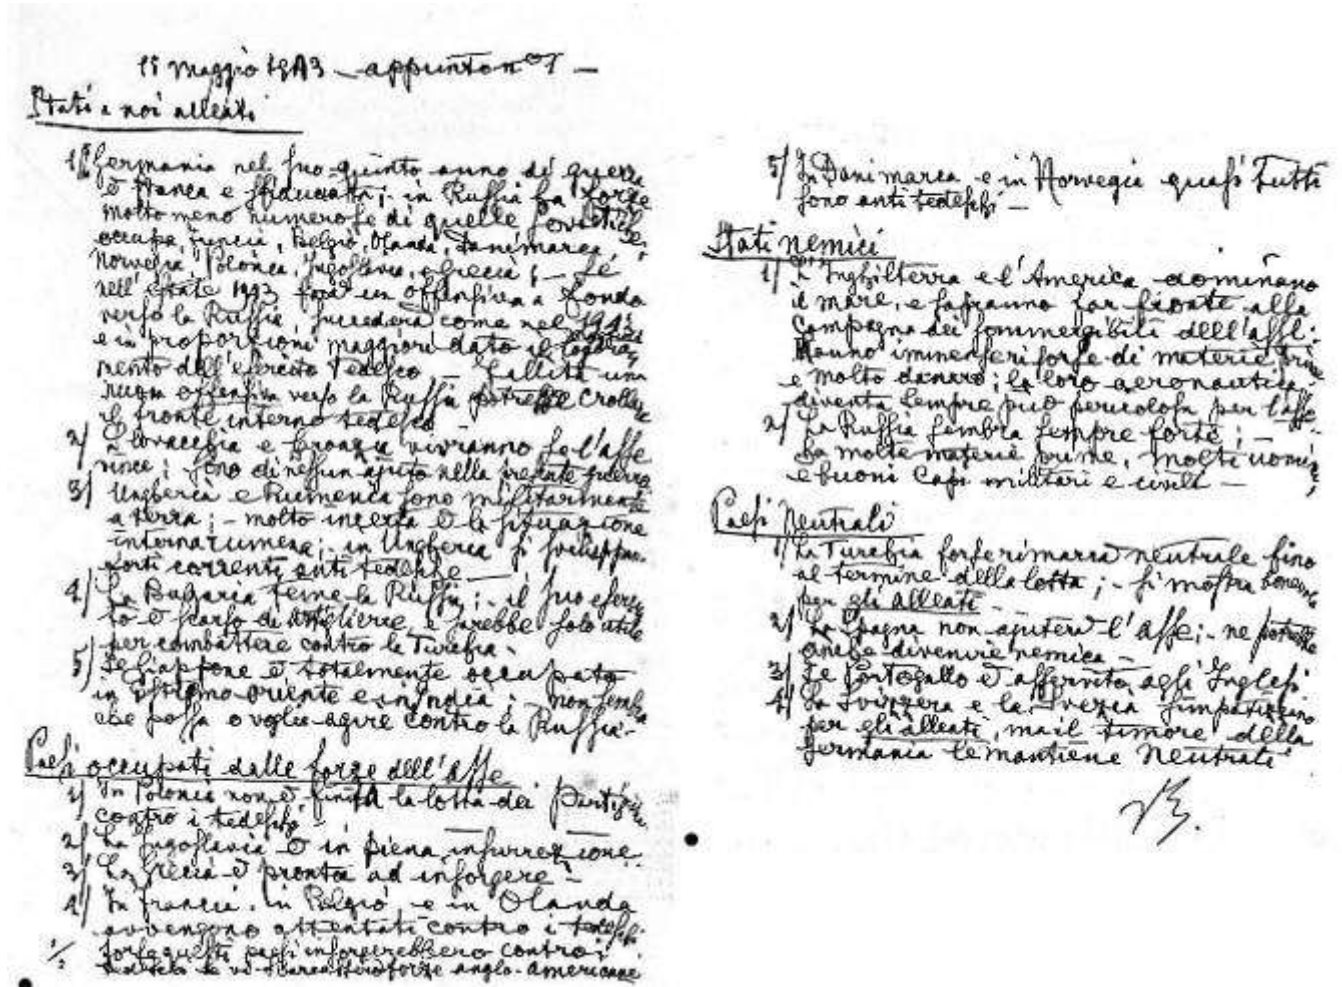 15 maggio 1943 - appunto n° 1 -
Stati a noi alleati
1) Germania nel suo quinto anno di guerra
è stanca e sfiduciata; in Russia ha forze
molto meno numerose di quelle sovietiche,
occupa Francia, Belgio, Olanda, Danimarca,
Norvegia, Polonia, Jugoslavia, Grecia; - Se
nell'estate 1943 farà un offensiva a fondo
verso la Russia, succederà come nel 1942
e in proporzioni maggiori dato il logora-
mento dell'esercito Tedesco - Fallita una
nuova offensiva verso la Russia potrebbe crollare
il fronte interno tedesco
2) Slovacchia e Croazia vivranno se l'asse
vince; sono di nessun aiuto nella presente guerra
3) Ungheria e Rumenia sono militarmente
a terra; - molto incerta è la situazione
interna rumena; in Ungheria si sviluppano
forti correnti anti tedesche
4) La Bulgaria teme la Russia; - il suo eserci
to è scarso di artiglierie, e sarebbe solo utile
per combattere contro la Turchia -
5) Il Giappone è totalmente occupato
in Estremo Oriente e in India; - non sembra
che possa o voglia agire contro la Russia -
Paesi occupati dalle forze dell'asse
1) In Polonia non è finita la lotta dei partigiani
contro i tedeschi -
2) La Jugoslavia è in piena insurrezione
3) La Grecia è pronta ad insorgere -
4) In Francia, in Belgio e in Olanda
avvengono attentati contro i tedeschi
forse questi paesi insorgerebbero contro i
tedeschi se vi sbarcassero forze anglo-americane
1/2
5) In Danimarca e in Norvegia quasi tutti
sono anti tedeschi -
Stati nemici
1) L'Inghilterra e l'America dominano
il mare, e sapranno far fronte alla
campagna dei sommergibili dell'asse;
Hanno immense risorse di materie prime
e molto danaro; la loro aeronautica
diventa sempre più pericolosa per l'asse
2) La Russia sembra sempre forte; -
ha molte materie prime, molti uomini,
e buoni capi militari e civili -
Paesi Neutrali
1) La Turchia forse rimarrà neutrale fino
al termine della lotta; - si mostra
per gli alleati -
2) La Spagna non aiuterà l'asse; - ne potrebbe
anche divenire nemica -
3) Il Portogallo è asservito agli Inglesi
4) La Svizzera e la Svezia simpatizzano
per gli alleati, ma il timore della
Germania le mantiene Neutrali